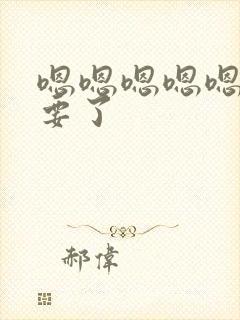 嗯嗯嗯嗯嗯
要了
郝偉